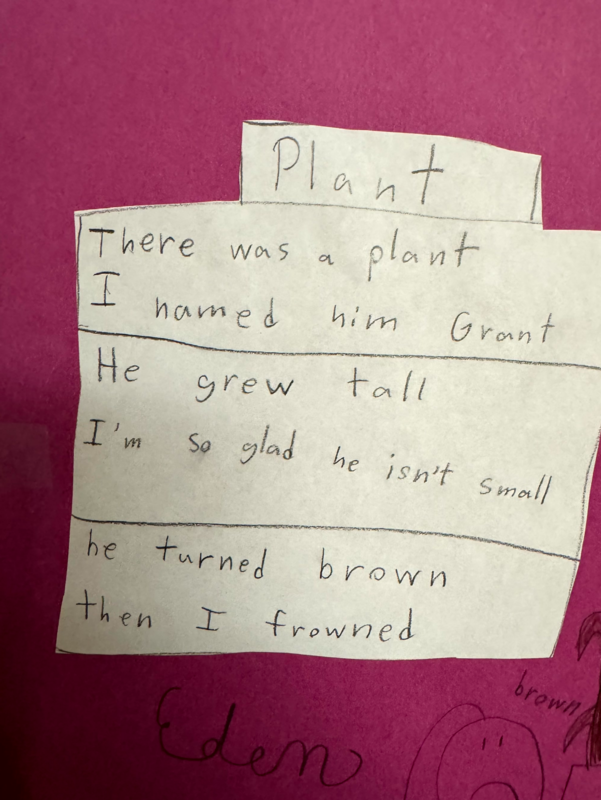 Plant
There was a plant
I named him Grant
He grew tall
I'm so glad he isn't small
he turned brown
then I frowned
Eden
brown